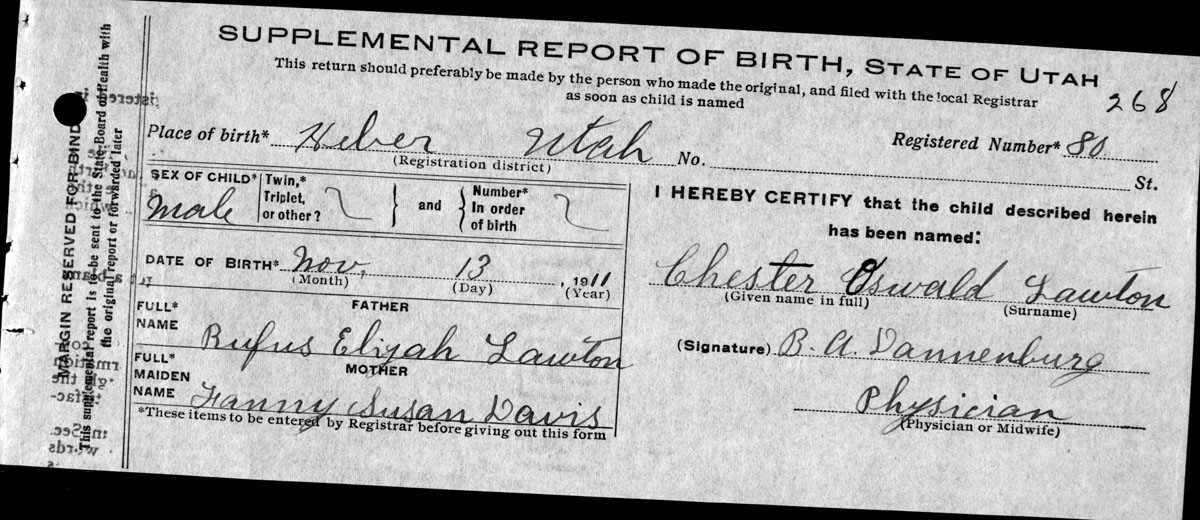 SUPPLEMENTAL REPORT OF BIRTH, STATE OF UTAH
This return should preferably be made by the person who made the original, and filed with the local Registrar
as soon as child is named
268
Place of birth* Heber Utah No. St.
(Registration district)
Registered Number* 80
SEX OF CHILD* Male
Twin,*
Triplet,
or other?
and
Number*
In order
of birth
DATE OF BIRTH* Nov. 13, 1911
(Month) (Day) (Year)
FATHER
FULL*
NAME Rufus Elijah Lawton
MOTHER
FULL*
MAIDEN
NAME Fanny Susan Davis
*These items to be entered by Registrar before giving out this form
I HEREBY CERTIFY that the child described herein
has been named:
Chester Oswald Lawton
(Given name in full) (Surname)
(Signature) B. A. Dannenburg
Physician
(Physician or Midwife)
MARGIN RESERVED FOR BIND
This supplemental report is to be sent to the State Board of Health with
the original report or forwarded later